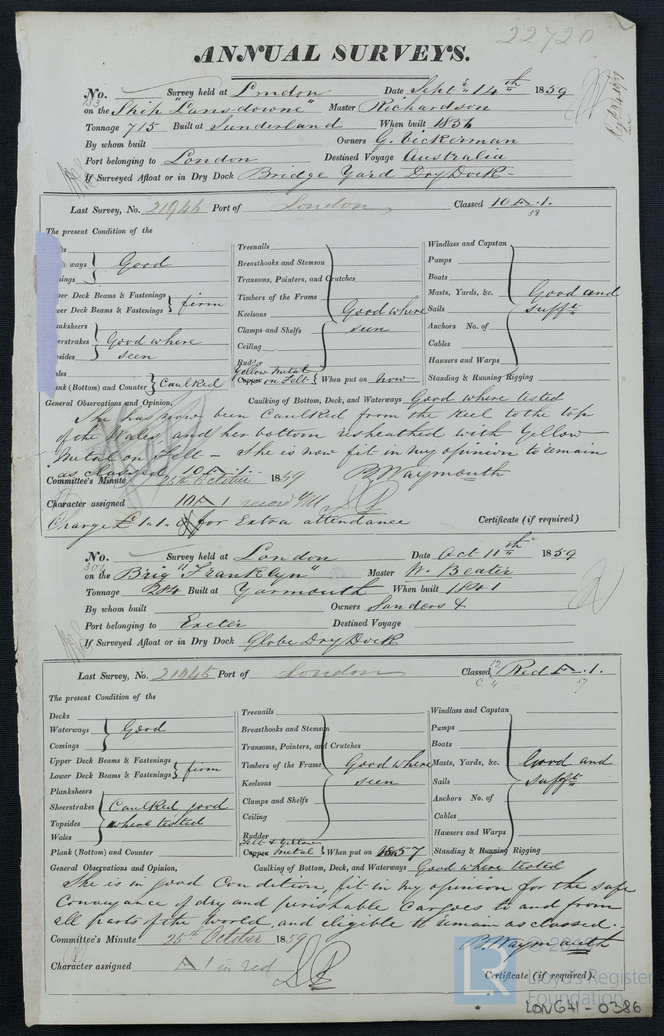 22720
ANNUAL SURVEYS.
No. Survey held at London Date Septr 14th 1859
on the Ship "Lansdowne" Master Richardson
Tonnage 715 Built at Sunderland When built 1836
By whom built Owners G. Vickerman
Port belonging to London Destined Voyage Australia
If Surveyed Afloat or in Dry Dock Bridge Yard Dry Dock
Last Survey, No. 21946 Port of London Classed 10 1.
58
The present Condition of the
ways Good
per Deck Beams & Fastenings
wer Deck Beams & Fastenings firm
anksheers
erstrakes Good where
psides seen
ales
ank (Bottom) and Counter Caulked
Treenails
Breasthooks and Stemson
Transoms, Pointers, and Crutches
Timbers of the Frame
Keelsons Good where
Clamps and Shelfs seen
Ceiling
Rudder
Yellow Metal
Copper on Felt When put on Now
Windlass and Capstan
Pumps
Boats
Masts, Yards, &c. Good and
Sails sufft
Anchors No. of
Cables
Hawsers and Warps
Standing & Running Rigging
General Observations and Opinion, Caulking of Bottom, Deck, and Waterways Good where tested
She has now been Caulked from the Keel to the top
of the Wales, and her bottom resheathed with Yellow
Metal on Felt - She is now fit in my opinion to remain
as classed 10 1. B. Waymouth
Committee's Minute 25th October 1859
Character assigned 10 A 1
Charge £ 1.1.0 for Extra attendance Certificate (if required)
No. Survey held at London Date Oct 11th 1859
on the Brig "Franklyn" Master W. Beater
Tonnage 204 Built at Yarmouth When built 1841
By whom built Owners Sanders &
Port belonging to Exeter Destined Voyage
If Surveyed Afloat or in Dry Dock Globe Dry Dock
Last Survey, No. 21045 Port of London Classed Red 1.
57
The present Condition of the
Decks
Waterways Good
Comings
Upper Deck Beams & Fastenings
Lower Deck Beams & Fastenings firm
Planksheers
Sheerstrakes Caulked good
Topsides where tested
Wales
Plank (Bottom) and Counter
Treenails
Breasthooks and Stemson
Transoms, Pointers, and Crutches
Timbers of the Frame Good where
Keelsons seen
Clamps and Shelfs
Ceiling
Rudder
Felt & Yellow
Copper Metal When put on 1857
Windlass and Capstan
Pumps
Boats
Masts, Yards, &c. Good and
Sails sufft
Anchors No. of
Cables
Hawsers and Warps
Standing & Running Rigging
General Observations and Opinion, Caulking of Bottom, Deck, and Waterways Good where tested
She is in good Condition, fit in my opinion for the safe
Conveyance of dry and perishable Cargoes to and from
all parts of the world, and eligible to remain as classed.
Committee's Minute 25th October 1859 B. Waymouth
Character assigned A 1 in red
Certificate (if required).
LR
Lloyd's Register
Foundation
LON641-0386